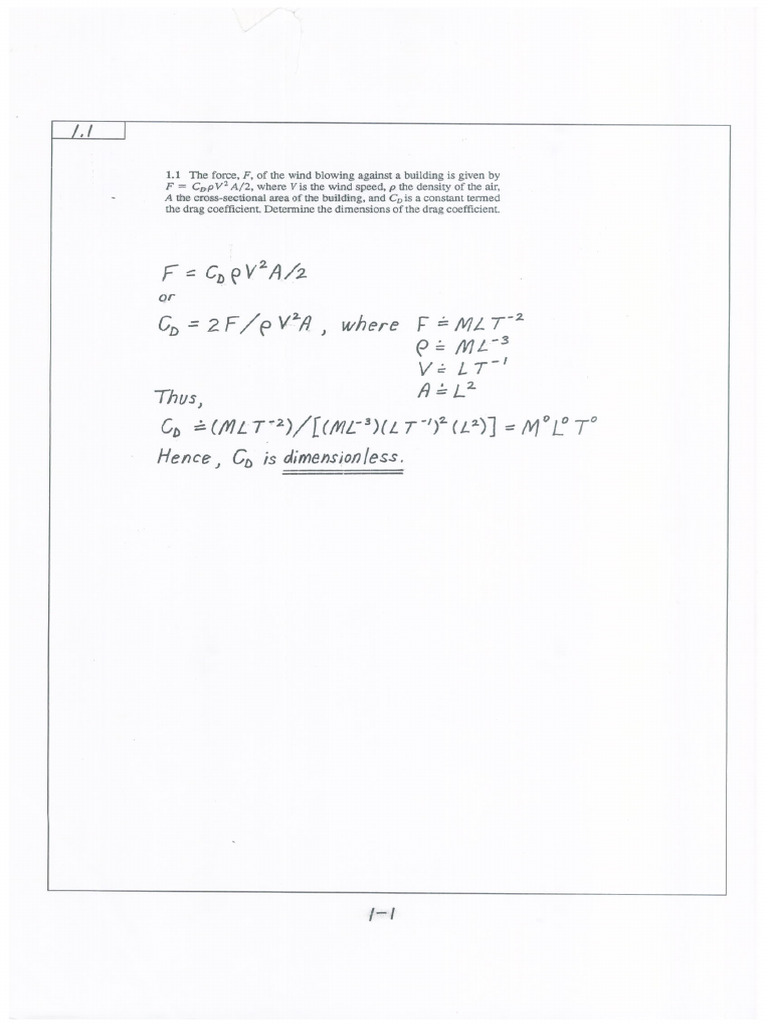 1.1
1.1 The force, F, of the wind blowing against a building is given by
F = C_D ρV² A/2, where V is the wind speed, ρ the density of the air,
A the cross-sectional area of the building, and C_D is a constant termed
the drag coefficient. Determine the dimensions of the drag coefficient.
F = C_D ρV²A/2
or
C_D = 2F/ρV²A, where F ≐ MLT⁻²
ρ ≐ ML⁻³
V ≐ LT⁻¹
A ≐ L²
Thus,
C_D ≐ (MLT⁻²)/[(ML⁻³)(LT⁻¹)²(L²)] = M⁰L⁰T⁰
Hence, C_D is dimensionless.
1-1